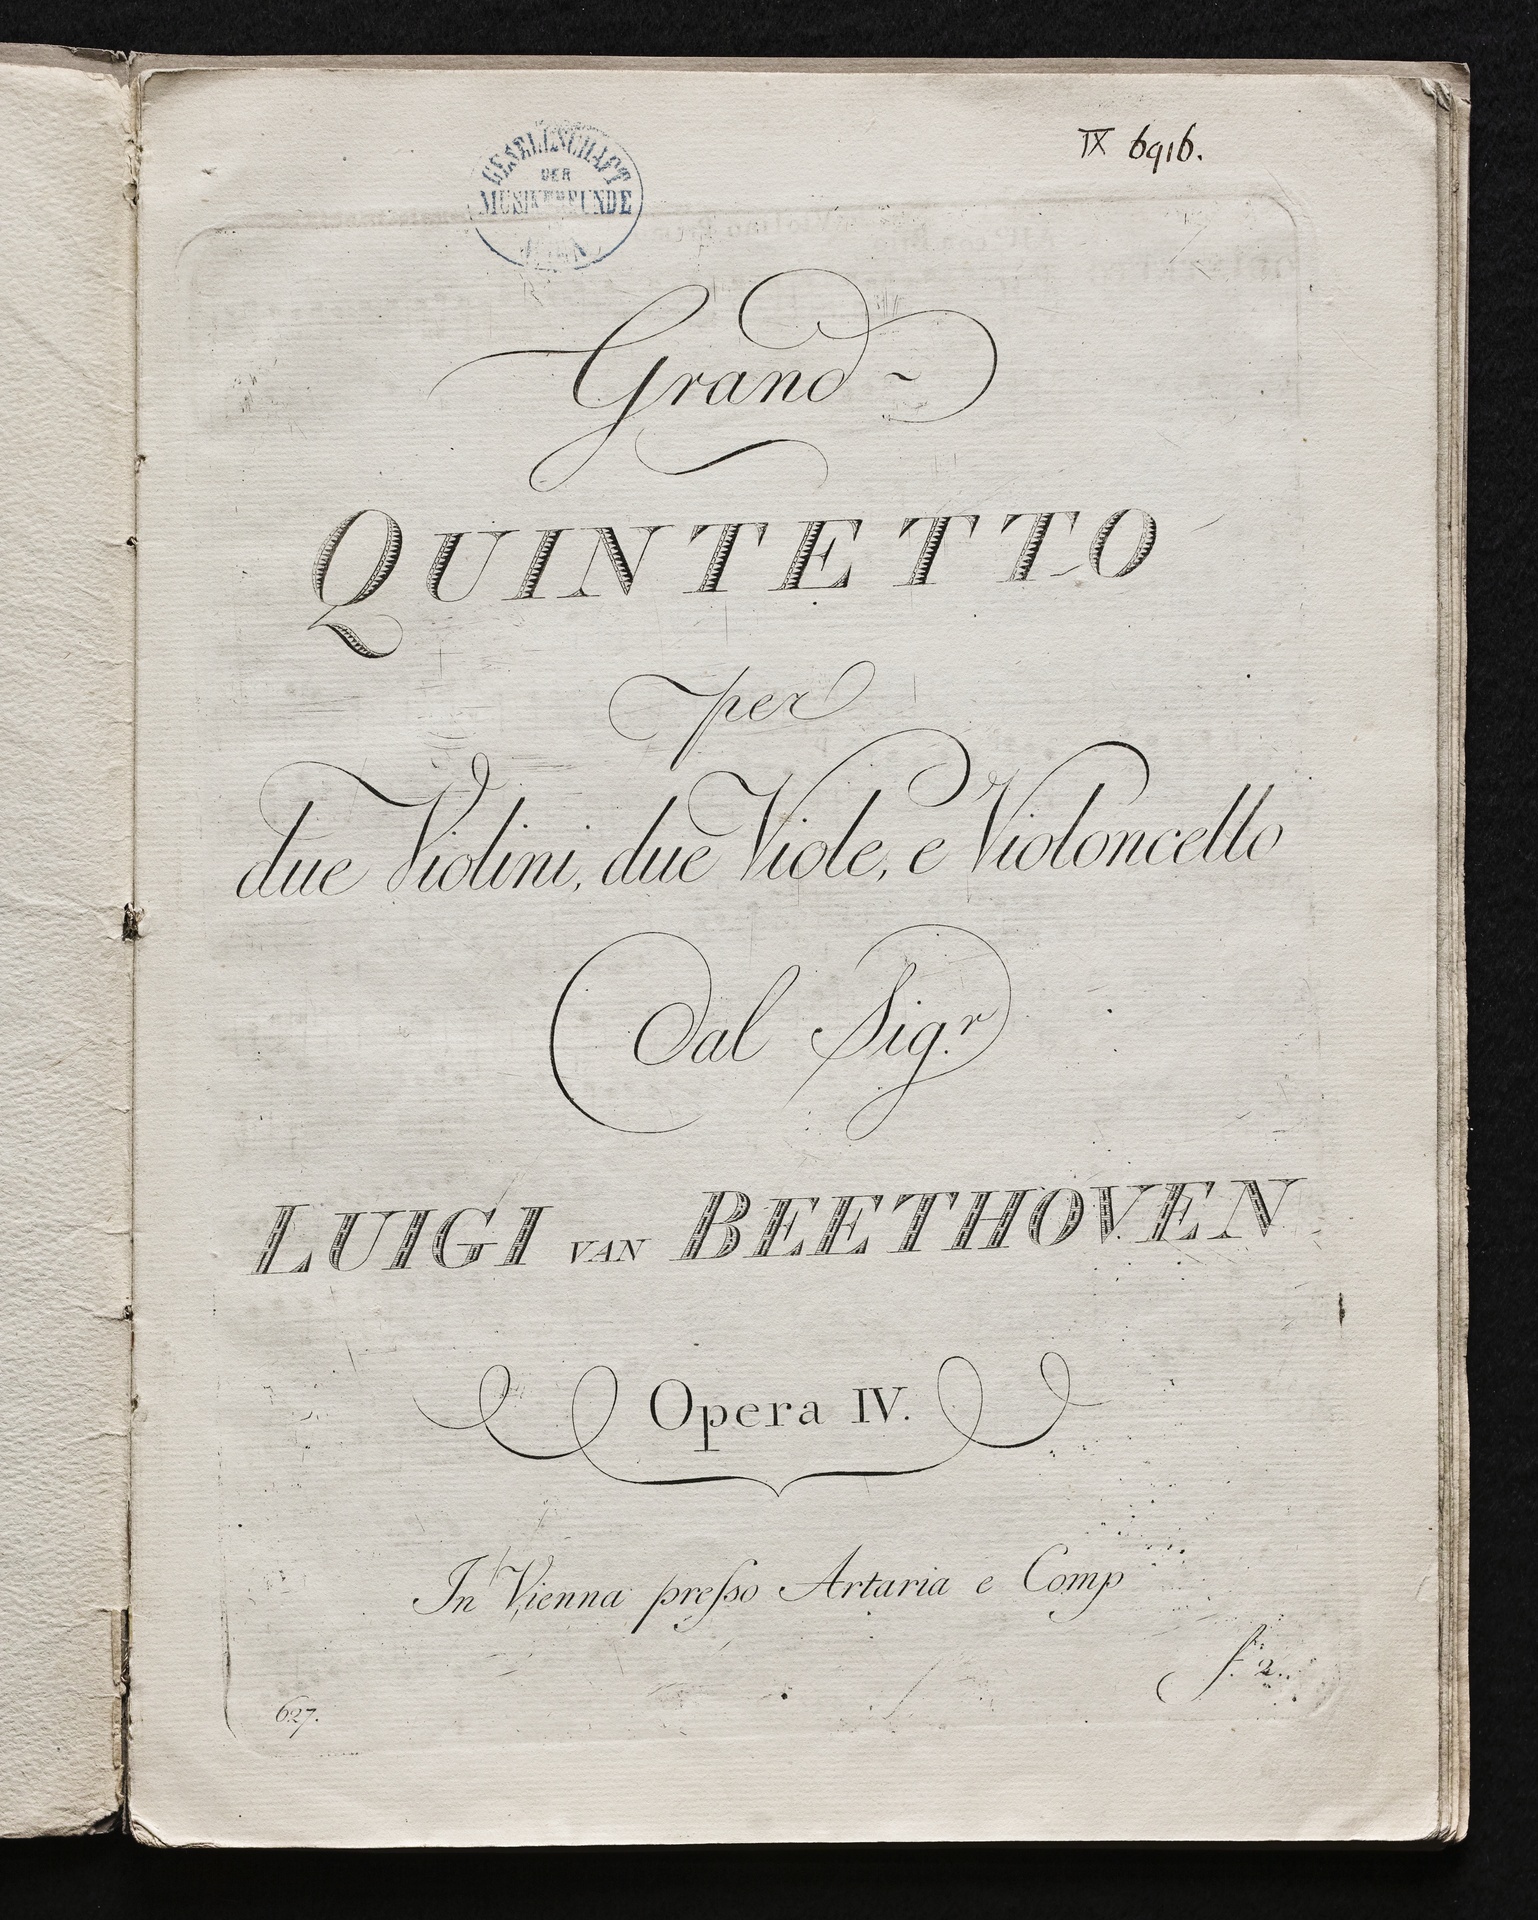 GESELLSCHAFT
DER
MUSIKFREUNDE
WIEN
IX 6916.
Grand
QUINTETTO
per
due Violini, due Viole, e Violoncello
Dal Sig.r
LUIGI VAN BEETHOVEN
Opera IV.
In Vienna preſso Artaria e Comp
f. 2.
627.